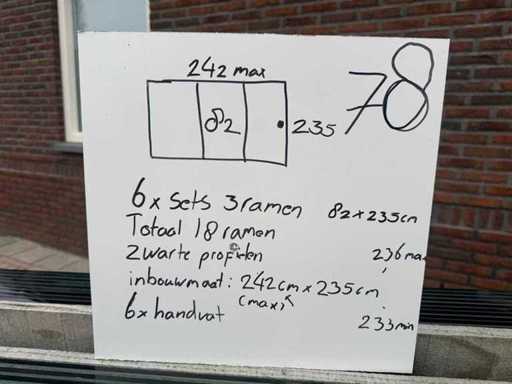 242 max
78
82
235
6x sets 3 ramen 82 x 235cm
Totaal 18 ramen
zwarte profielen 236 max
inbouwmaat: 242cm x 235cm
(max)
6x handvat 233 min